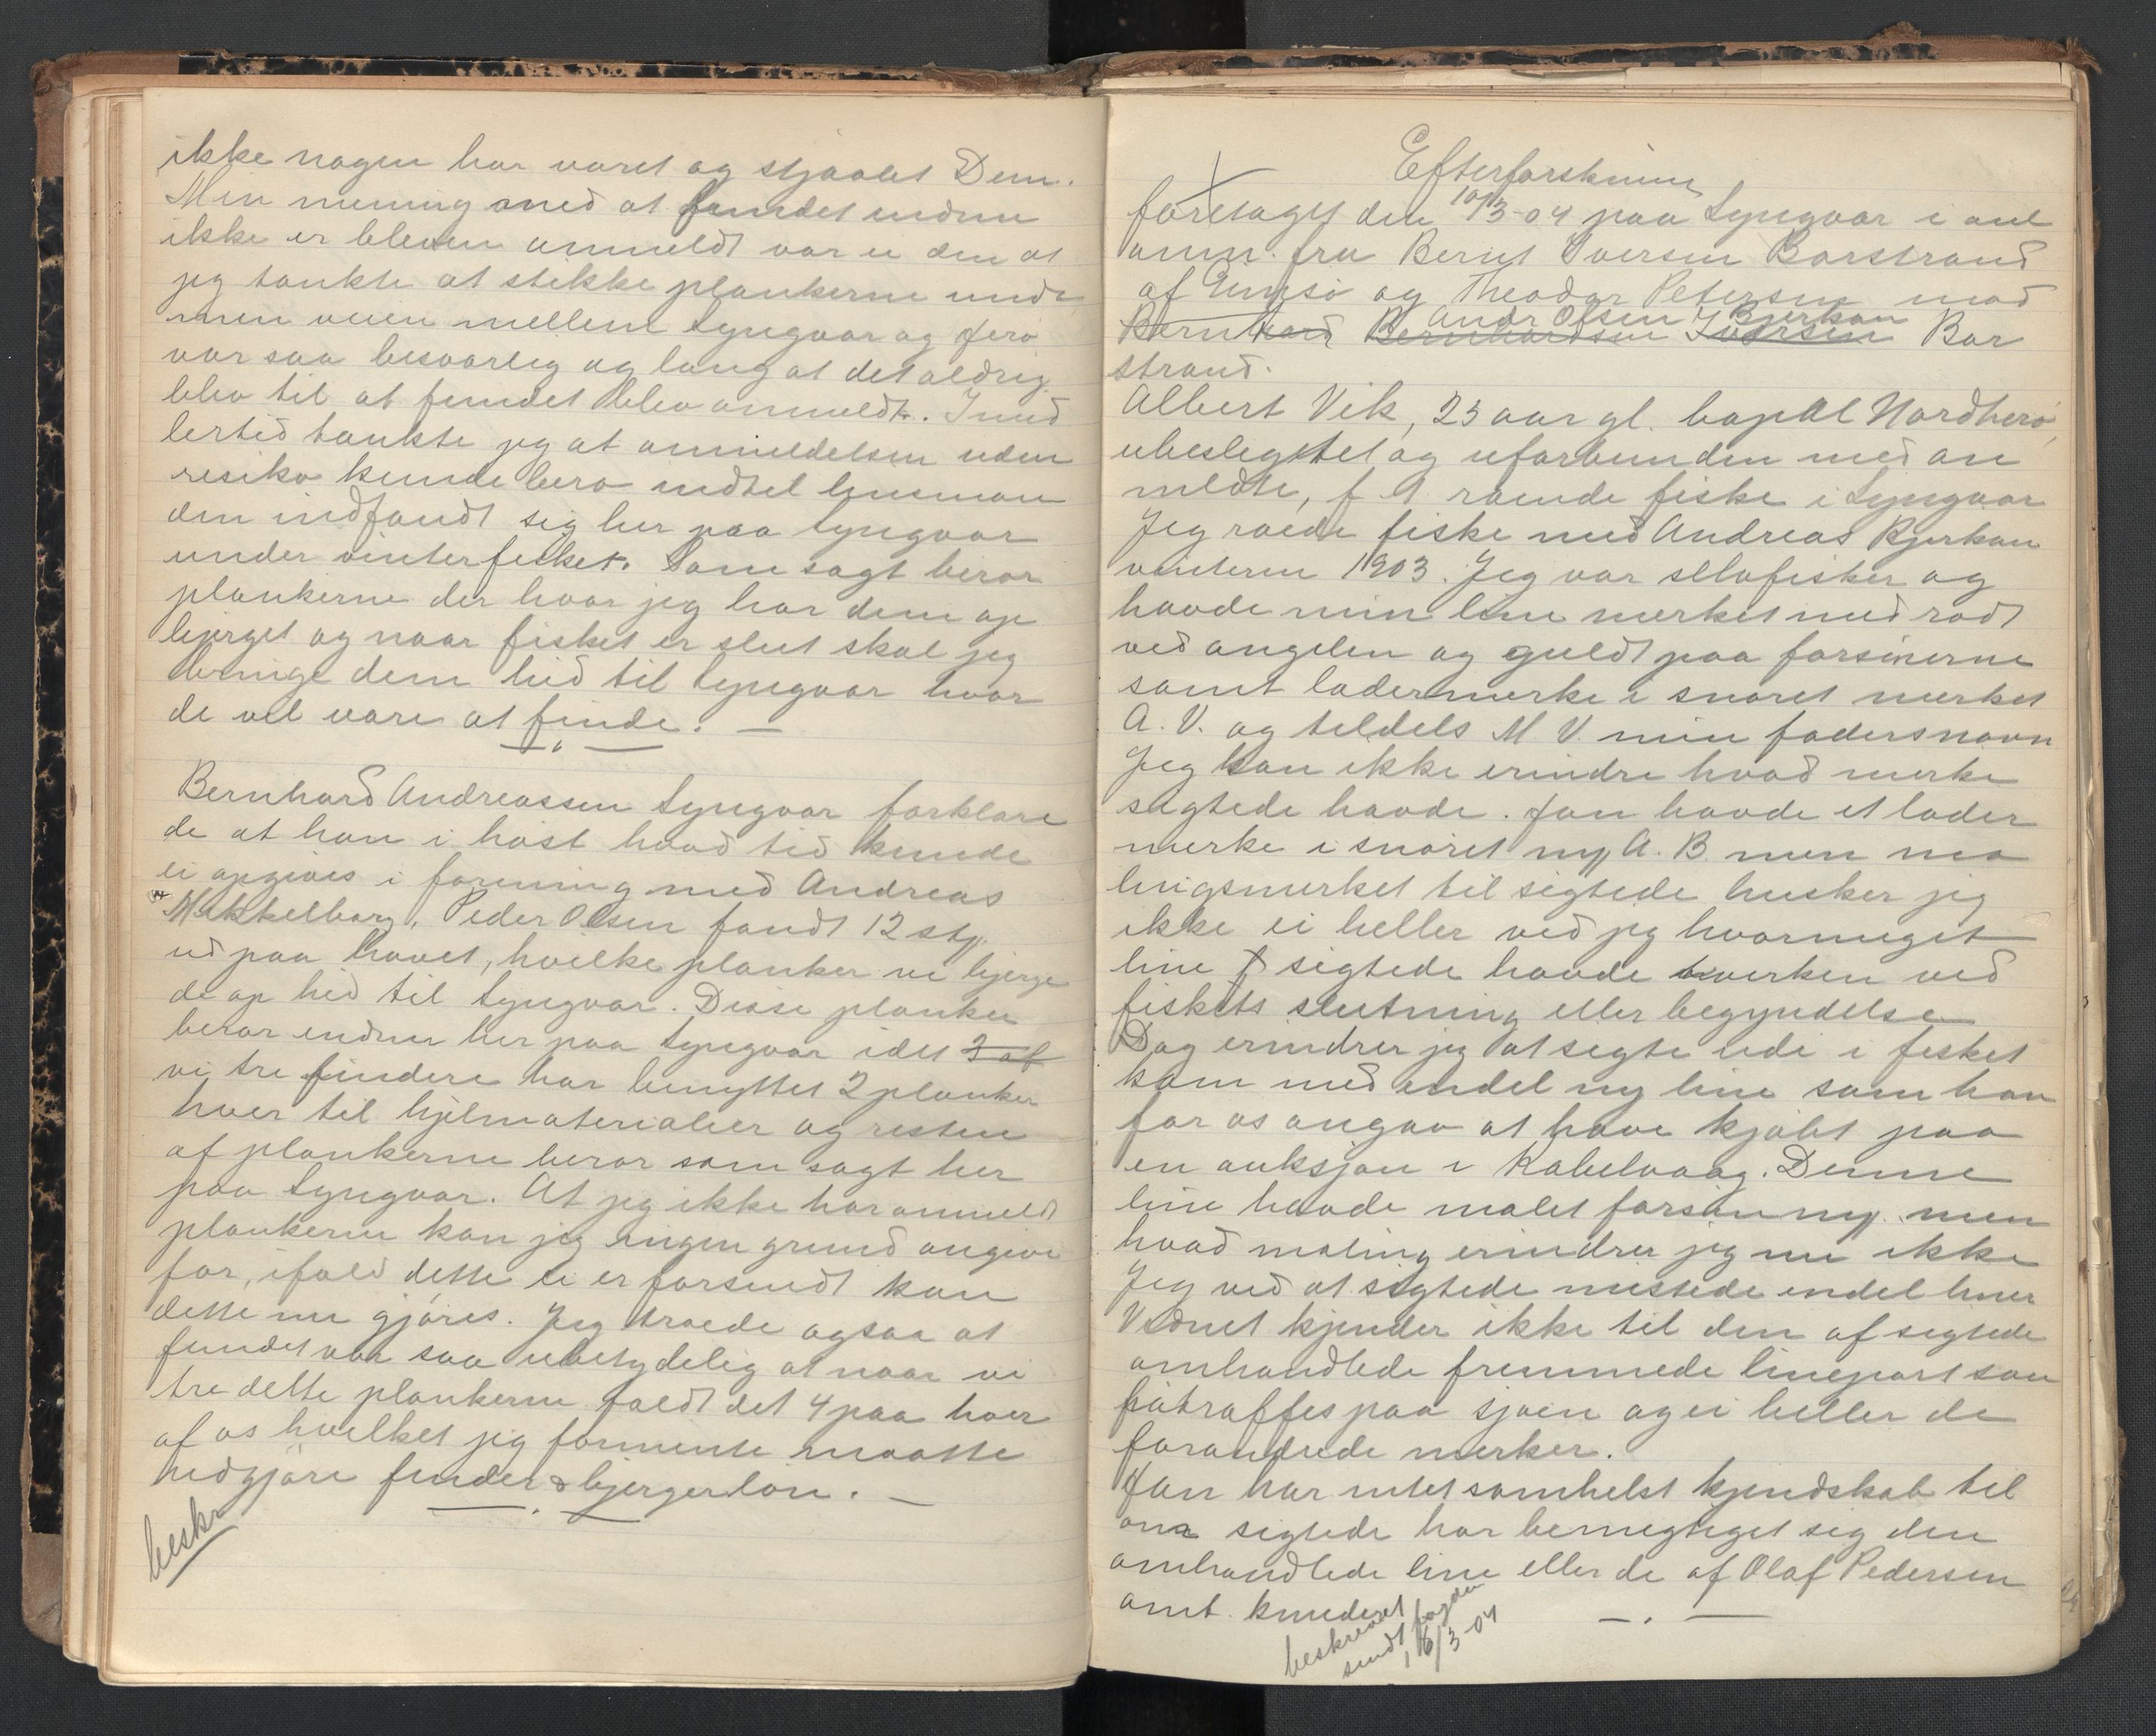 ikke nogen har været og stjaalet Dem.
Min mening med at fundet endnu
ikke er bleven anmeldt var u den at
jeg tænkte at stikke plankerne unde
men veien mellem Lyngvær og
var saa besværlig og lang at det aldrig
blev til at fundet blev anmeldt. Imid
lertid tænkte jeg at anmeldelsen uden
resiko kunde bero indtil lensman
den indfandt sig her paa Lyngvær
under vinterfisket. Som sagt beror
plankerne der hvor jeg har dem op
bjerget og naar fisket er slut skal jeg
bringe dem hid til Lyngvær hvor
de vil være at finde. —
Bernhard Andreassen Lyngvær forklare
de at han i høst hvad tid kunde
ei opgives i forening med Andreas
Mikkelborg, Peder Olsen fandt 12 stk.
ud paa havet, hvilke planker vi bjerge
de op hid til Lyngvær. Disse planker
beror endnu her paa Lyngvær idet 2 af
vi tre findere har benyttet 2 planker
hver til hjelmaterialier og resten
af plankerne beror som sagt her
paa Lyngvær. At jeg ikke har anmeldt
plankerne kan jeg ingen grund angive
for, ifald dette ei er forsendt kan
dette nu gjøres. Jeg troede ogsaa at
fundet var saa ubetydelig at naar vi
tre delte plankerne faldt det 4 paa hver
af os hvilket jeg formente maatte
medgjøre finder & bjergerløn. —
beskr
Efterforskning
foretaget den 10/3-04 paa Lyngvær i anl
anm. fra Bernt Iversen Borstrand
af Gimsø og Theodor Petersen mod
Andr Olsen Bjerkan
Bernhard Bernhardsen Iversen Bor
strand.
Albert Vik, 23 aar gl. bopæl Nordherø,
ubeslegtet og uforbunden med an
meldte, f. t. roende fiske i Lyngvær
Jeg roede fiske med Andreas Bjerkan
vinteren 1903. Jeg var selvfisker og
havde min line merket med rødt
ved angelen og guldt paa forsinerne
samt lædermerke i snøret merket
A. V. og tildels M V. min faders navn
Jeg kan ikke erindre hvad merke
sigtede havde. Han havde et læder
merke i snøret mrk A. B. men ma
lingsmerket til sigtede husker jeg
ikke ei heller ved jeg hvormeget
line sigtede havde hverken ved
fiskets slutning eller begyndelse
Dog erindrer jeg at sigte ude i fisket
kom med endel ny line som han
for os angav at have kjøbt paa
en auksjon i Kabelvaag. Denne
line havde malet forsin mrk. men
hvad maling erindrer jeg nu ikke
Jeg ved at sigtede mistede endel liner
Vidnet kjender ikke til den af sigtede
omhandlede fremmede linepart som
påtræffes paa sjøen og ei heller de
forandrede merker.
Han har intet somhelst kjendskab til
om sigtede har bemegtiget sig den
omhandlede line eller de af Olaf Pedersen
omt.
beskrevet
sendt fogden
16/3-04